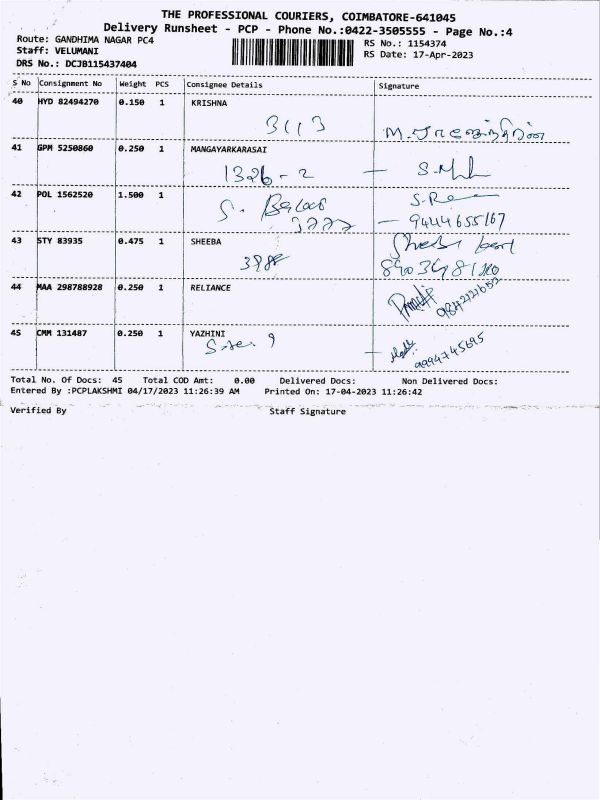 THE PROFESSIONAL COURIERS, COIMBATORE-641045
Delivery Runsheet - PCP - Phone No.:0422-3505555 - Page No.:4
Route: GANDHIMA NAGAR PC4
RS No.: 1154374
Staff: VELUMANI
RS Date: 17-Apr-2023
DRS No.: DCJB115437404
S No Consignment No Weight PCS Consignee Details Signature
40 HYD 82494270 0.150 1 KRISHNA
3113
41 GPM 5250860 0.250 1 MANGAYARKARASAI
1326-2
42 POL 1562520 1.500 1
S.
- 9444655167
43 STY 83935 0.475 1 SHEEBA
44 MAA 298788928 0.250 1 RELIANCE
45 CMM 131487 0.250 1 YAZHINI
9994745695
Total No. Of Docs: 45 Total COD Amt: 0.00 Delivered Docs: Non Delivered Docs:
Entered By :PCPLAKSHMI 04/17/2023 11:26:39 AM Printed On: 17-04-2023 11:26:42
Verified By Staff Signature